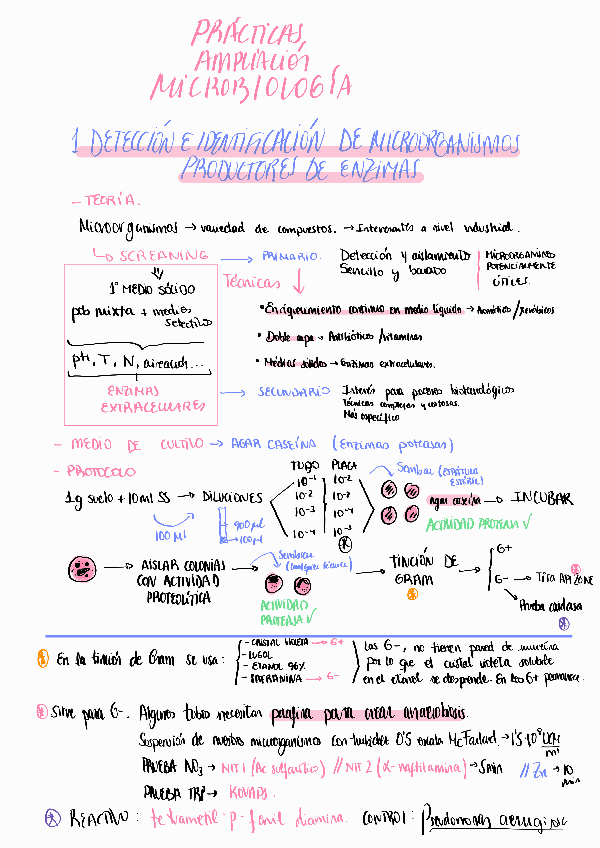 PRÁCTICAS,
AMPLIACIÓN
MICROBIOLOGÍA
1 DETECCIÓN E IDENTIFICACIÓN DE MICROORGANISMOS
PRODUCTORES DE ENZIMAS
- TEORÍA.
Microorganismos → variedad de compuestos. → Interesantes a nivel industrial.
↳ SCREANING → PRIMARIO. Detección y aislamiento
Sencillo y barato
MICROORGANISMOS
POTENCIALMENTE
ÚTILES.
1º MEDIO SÓLIDO
pob mixta + medios
selectivos
pH, T, N, aireación...
ENZIMAS
EXTRACELULARES
Técnicas
• Enriquecimiento continuo en medio líquido →
• Doble capa → Antibióticos/vitaminas
• Medios sólidos → Enzimas extracelulares.
→ SECUNDARIO Interés para procesos biotecnológicos
Técnicas complejas y costosas.
Más específico
- MEDIO DE CULTIVO → AGAR CASEÍNA (Enzimas proteasas)
- PROTOCOLO
TUBO PLACA
10⁻¹ 10⁻²
10⁻² 10⁻³
10⁻³ 10⁻⁴
10⁻⁴ 10⁻⁵
1g suelo + 10 ml SS → DILUCIONES
100 µl
900 µl
100 µl
Sembrar (ESPÁTULA
ESTÉRIL)
agar caseína → INCUBAR
ACTIVIDAD PROTEASA ✓
→ AISLAR COLONIAS
CON ACTIVIDAD
PROTEOLÍTICA
Sembrar
(cualquier técnica)
ACTIVIDAD
PROTEASA ✓
→ TINCIÓN DE
GRAM
G+
G- → Tira API ZONE
Prueba oxidasa
* En la tinción de Gram se usa:
- CRISTAL VIOLETA → G+
- LUGOL
- ETANOL 96%
- SAFRANINA → G-
Las G-, no tienen pared de mureína
por lo que el cristal violeta soluble
en el etanol se desprende. En las G+ permanece.
* Sirve para G-. Algunos tubos necesitan parafina para crear anaerobiosis.
Suspensión de nuestros microorganismos con turbidez 0'5 escala McFarland. → 1'5·10⁸ UFC/ml
PRUEBA NO₃ → NIT 1 (Ac sulfanílico) // NIT 2 (α-naftilamina) → 5 min // Zn → 10 min
PRUEBA TRP → KOVACS.
* REACTIVO: tetrametil-p-fenil diamina. CONTROL: Pseudomonas aeruginosa